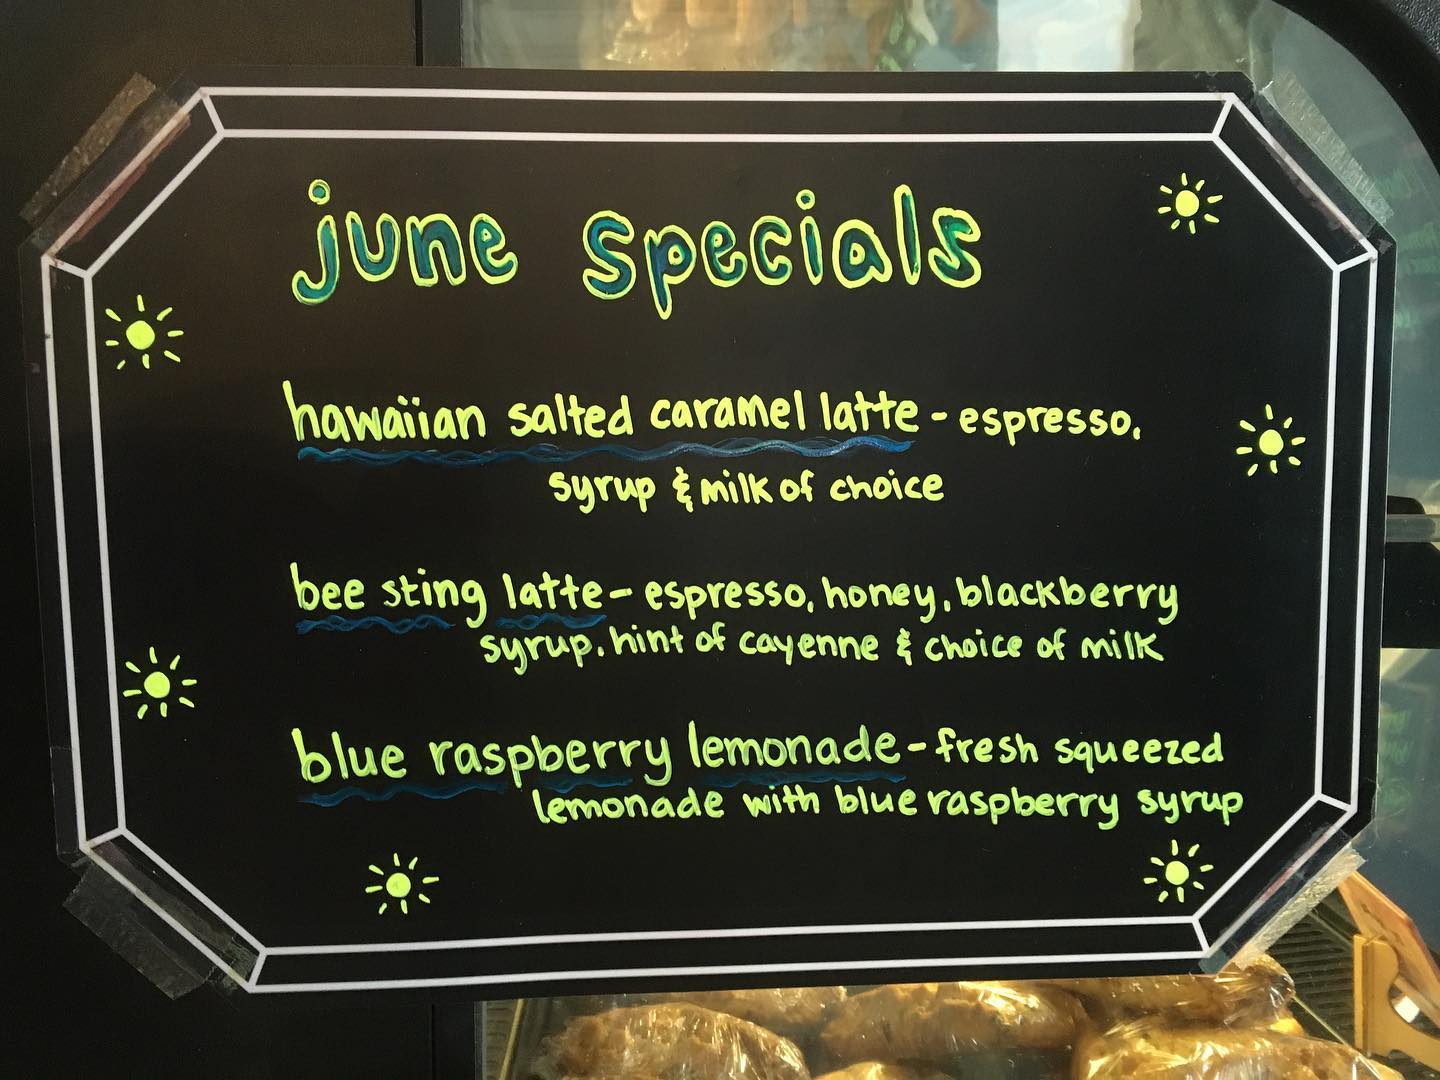 june specials
hawaiian salted caramel latte - espresso,
syrup & milk of choice
bee sting latte - espresso, honey, blackberry
syrup, hint of cayenne & choice of milk
blue raspberry lemonade - fresh squeezed
lemonade with blue raspberry syrup